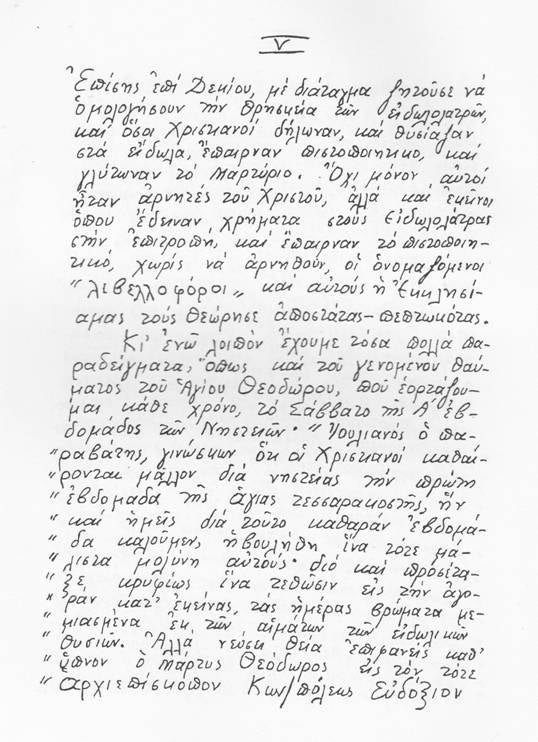 V
Ἐπίσης ἐπί Δεκίου, μέ διάταγμα ζητοῦσε νά
ὁμολογήσουν τήν θρησκεία τῶν εἰδωλολατρῶν,
καί ὅσοι Χριστιανοί δήλωναν, καί θυσίαζαν
στά εἴδωλα, ἔπαιρναν πιστοποιητικο, καί
γλύτωναν τό μαρτύριο. Ὄχι μόνον αὐτοί
ἦταν ἀρνητές τοῦ Χριστοῦ, ἀλλά καί ἐκεῖνοι
ὅπου ἔδειναν χρήματα στούς εἰδωλολάτρας
στήν ἐπιτροπη, καί ἔπαιρναν τό πιστοποιη-
τικό, χωρίς νά ἀρνηθοῦν, οἱ ὀνομαζόμενοι
"λιβελλοφόροι" καί αὐτούς ἡ Ἐκκλησί-
αμας τούς θεώρησε ἀποστάτας-πεπτωκότας.
Κι' ἐνῶ λοιπόν ἔχουμε τόσα πολλά πα-
ραδείγματα, ὅπως καί τοῦ γενομένου θαύ-
ματος τοῦ Ἁγίου Θεοδώρου, πού ἑορτάζου-
μαι κάθε χρόνο, τό Σάββατο τῆς Α' ἑβ-
δομάδος τῶν Νηστειῶν· "Ἰουλιανός ὁ πα-
"ραβάτης, γινώσκων ὅτι οἱ Χριστιανοί καθαί-
"ρονται μᾶλλον διά νηστείας τήν πρώτη
"ἑβδομάδα τῆς ἁγίας τεσσαρακοστῆς, ἥν
"καί ἡμεῖς διά τοῦτο καθαράν ἑβδομά-
"δα καλοῦμεν, ἠβουλήθη ἵνα τότε μά-
"λιστα μολύνη αὐτούς· διό καί προσέτα-
"ξε κρυφίως ἵνα τεθῶσιν εἰς τήν ἀγο-
"ράν κατ' ἐκείνας τάς ἡμέρας βρώματα με-
"μιασμένα ἐκ τῶν αἱμάτων τῶν εἰδωλικῶν
"θυσιῶν. Ἀλλά νεύσει θεία ἐπιφανείς καθ'
"ὕπνον ὁ μάρτυς Θεόδωρος εἰς τόν τότε
"ἀρχιεπίσκοπον Κων/πόλεως Εὐδόξιον